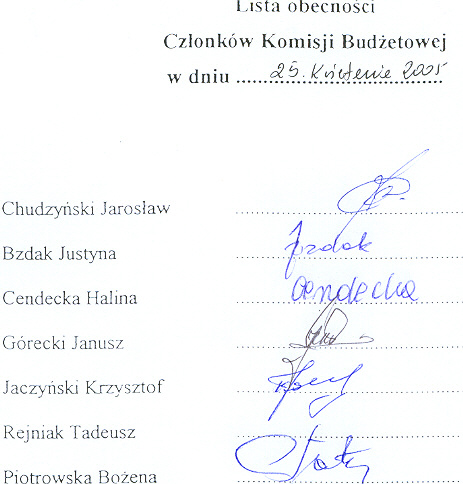 Lista obecności
Członków Komisji Budżetowej
w dniu 25. Kwietnia 2005
Chudzyński Jarosław
Bzdak Justyna Bzdak
Cendecka Halina Cendecka
Górecki Janusz
Jaczyński Krzysztof
Rejniak Tadeusz
Piotrowska Bożena